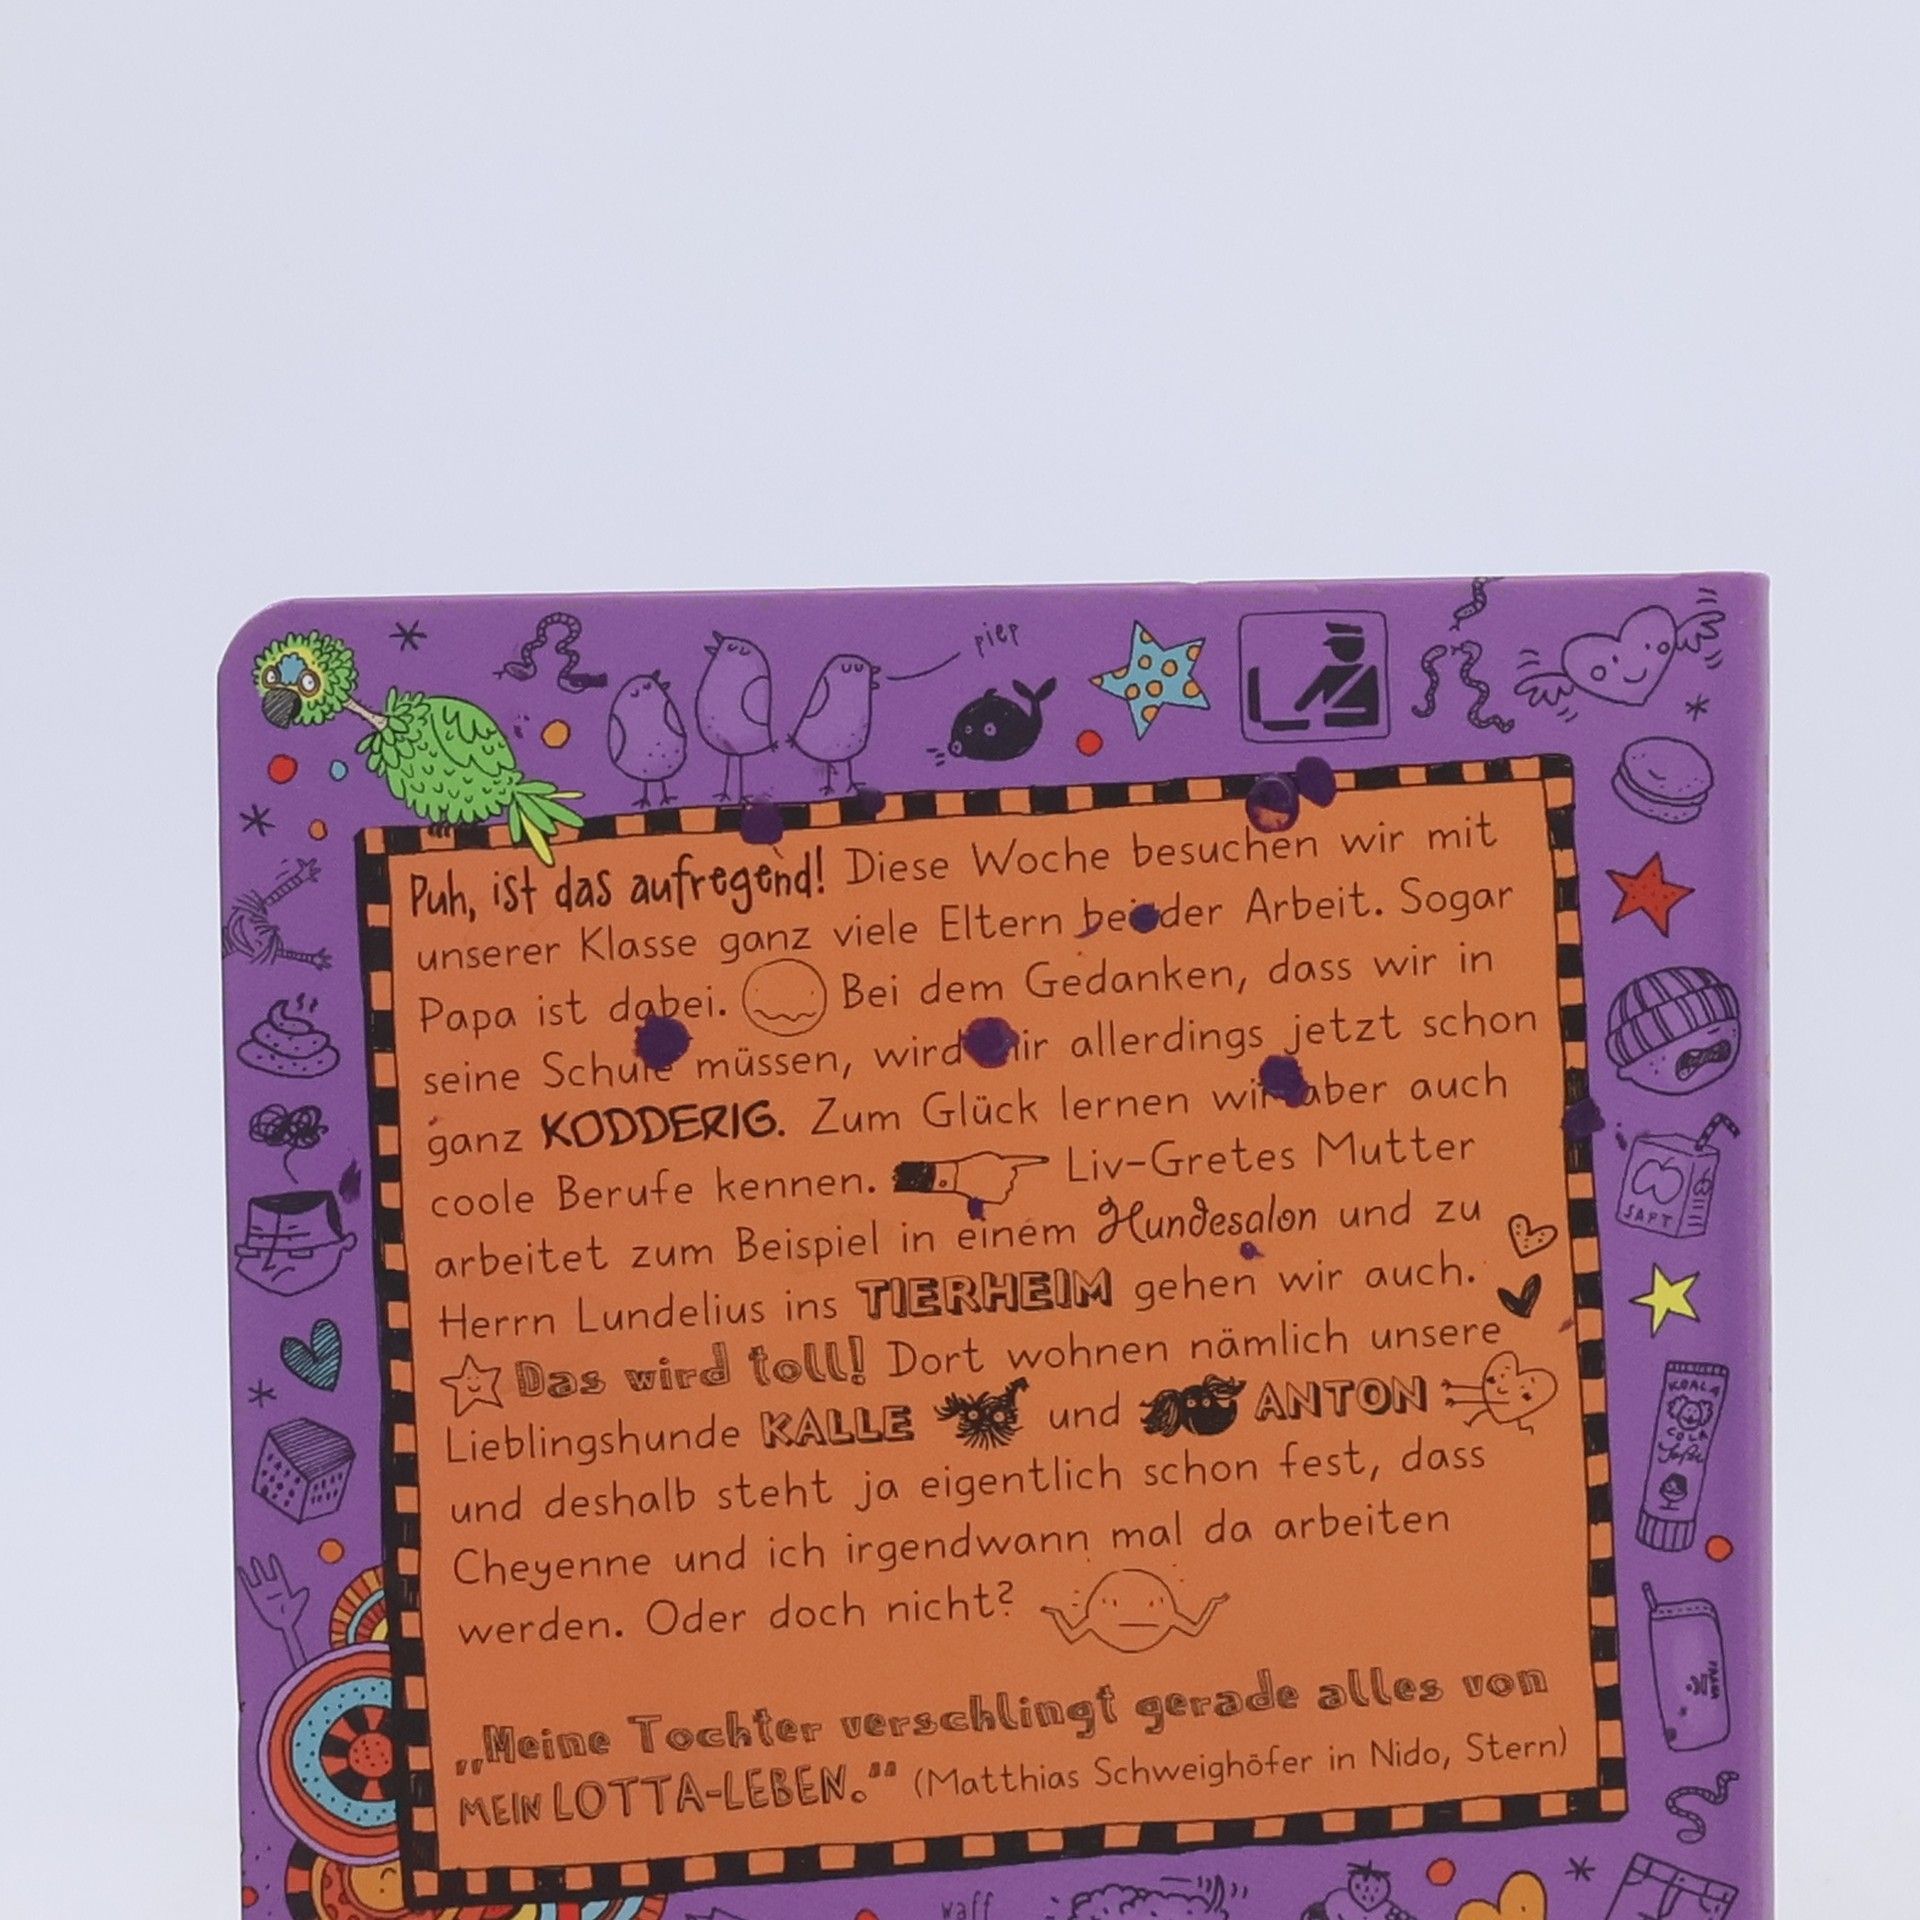 piep
Puh, ist das aufregend! Diese Woche besuchen wir mit
unserer Klasse ganz viele Eltern bei der Arbeit. Sogar
Papa ist dabei. Bei dem Gedanken, dass wir in
seine Schule müssen, wird mir allerdings jetzt schon
ganz KODDERIG. Zum Glück lernen wir aber auch
coole Berufe kennen. Liv-Gretes Mutter
arbeitet zum Beispiel in einem Hundesalon und zu
Herrn Lundelius ins TIERHEIM gehen wir auch.
Das wird toll! Dort wohnen nämlich unsere
Lieblingshunde KALLE und ANTON
und deshalb steht ja eigentlich schon fest, dass
Cheyenne und ich irgendwann mal da arbeiten
werden. Oder doch nicht?
„Meine Tochter verschlingt gerade alles von
MEIN LOTTA-LEBEN.“ (Matthias Schweighöfer in Nido, Stern)
SAFT
BIO
KOALA
COLA
waff